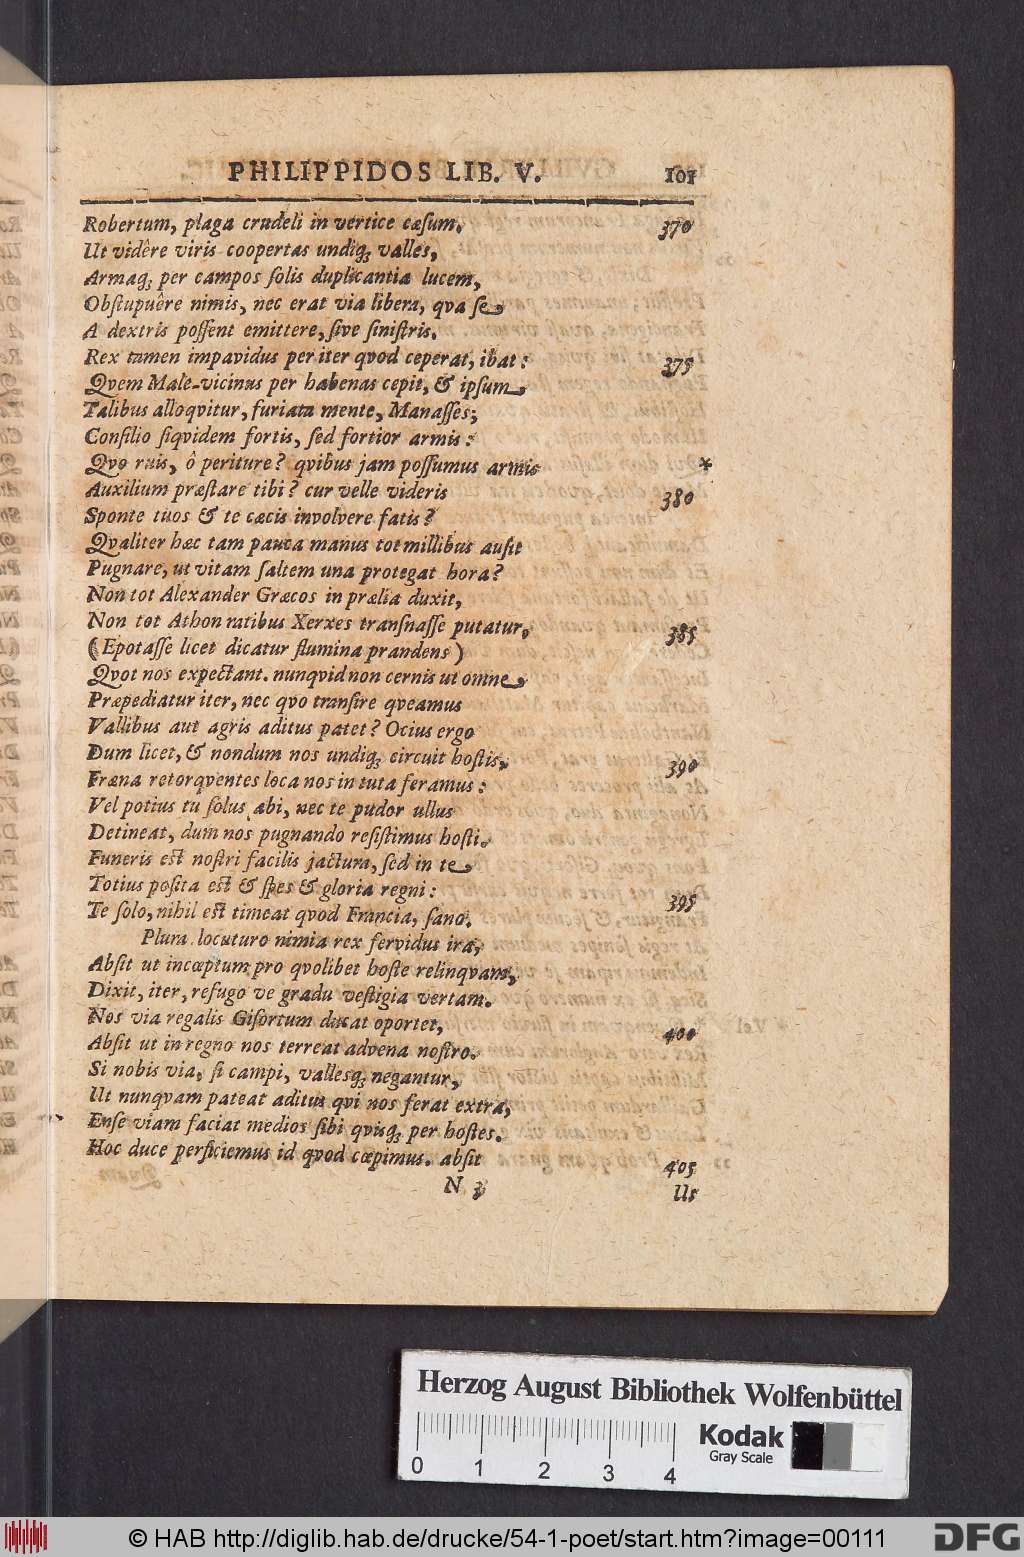 PHILIPPIDOS LIB. V. 101
Robertum, plaga crudeli in vertice cæsum. 370
Ut vidêre viris coopertas undiq; valles,
Armaq; per campos solis duplicantia lucem,
Obstupuêre nimis, nec erat via libera, qva se
A dextris possent emittere, sive sinistris.
Rex tamen impavidus per iter qvod ceperat, ibat: 375
Qvem Male-vicinus per habenas cepit, & ipsum
Talibus alloqvitur, furiata mente, Manasses;
Consilio siqvidem fortis, sed fortior armis:
Qvo ruis, ô periture? qvibus jam possumus armis *
Auxilium præstare tibi? cur velle videris 380
Sponte tuos & te cæcis involvere fatis?
Qvaliter hæc tam pauca manus tot millibus ausit
Pugnare, ut vitam saltem una protegat hora?
Non tot Alexander Græcos in prælia duxit,
Non tot Athon ratibus Xerxes transnasse putatur, 385
(Epotasse licet dicatur flumina prandens)
Qvot nos expectant. nunqvid non cernis ut omne
Præpediatur iter, nec qvo transire qveamus
Vallibus aut agris aditus patet? Ocius ergo
Dum licet, & nondum nos undiq; circuit hostis, 390
Fræna retorqventes loca nos in tuta feramus:
Vel potius tu solus abi, nec te pudor ullus
Detineat, dum nos pugnando resistimus hosti.
Funeris est nostri facilis jactura, sed in te
Totius posita est & spes & gloria regni: 395
Te solo, nihil est timeat qvod Francia, sano.
Plura locuturo nimia rex fervidus ira,
Absit ut incœptum pro qvolibet hoste relinqvam,
Dixit, iter, refugo ve gradu vestigia vertam.
Nos via regalis Gisortum ducat oportet, 400
Absit ut in regno nos terreat advena nostro.
Si nobis via, si campi, vallesq; negantur,
Ut nunqvam pateat aditus qvi nos ferat extra,
Ense viam faciat medios sibi qvisq; per hostes.
Hoc duce perficiemus id qvod cœpimus. absit 405
N 3 Us
Herzog August Bibliothek Wolfenbüttel
0 1 2 3 4
Kodak
Gray Scale
© HAB http://diglib.hab.de/drucke/54-1-poet/start.htm?image=00111
DFG